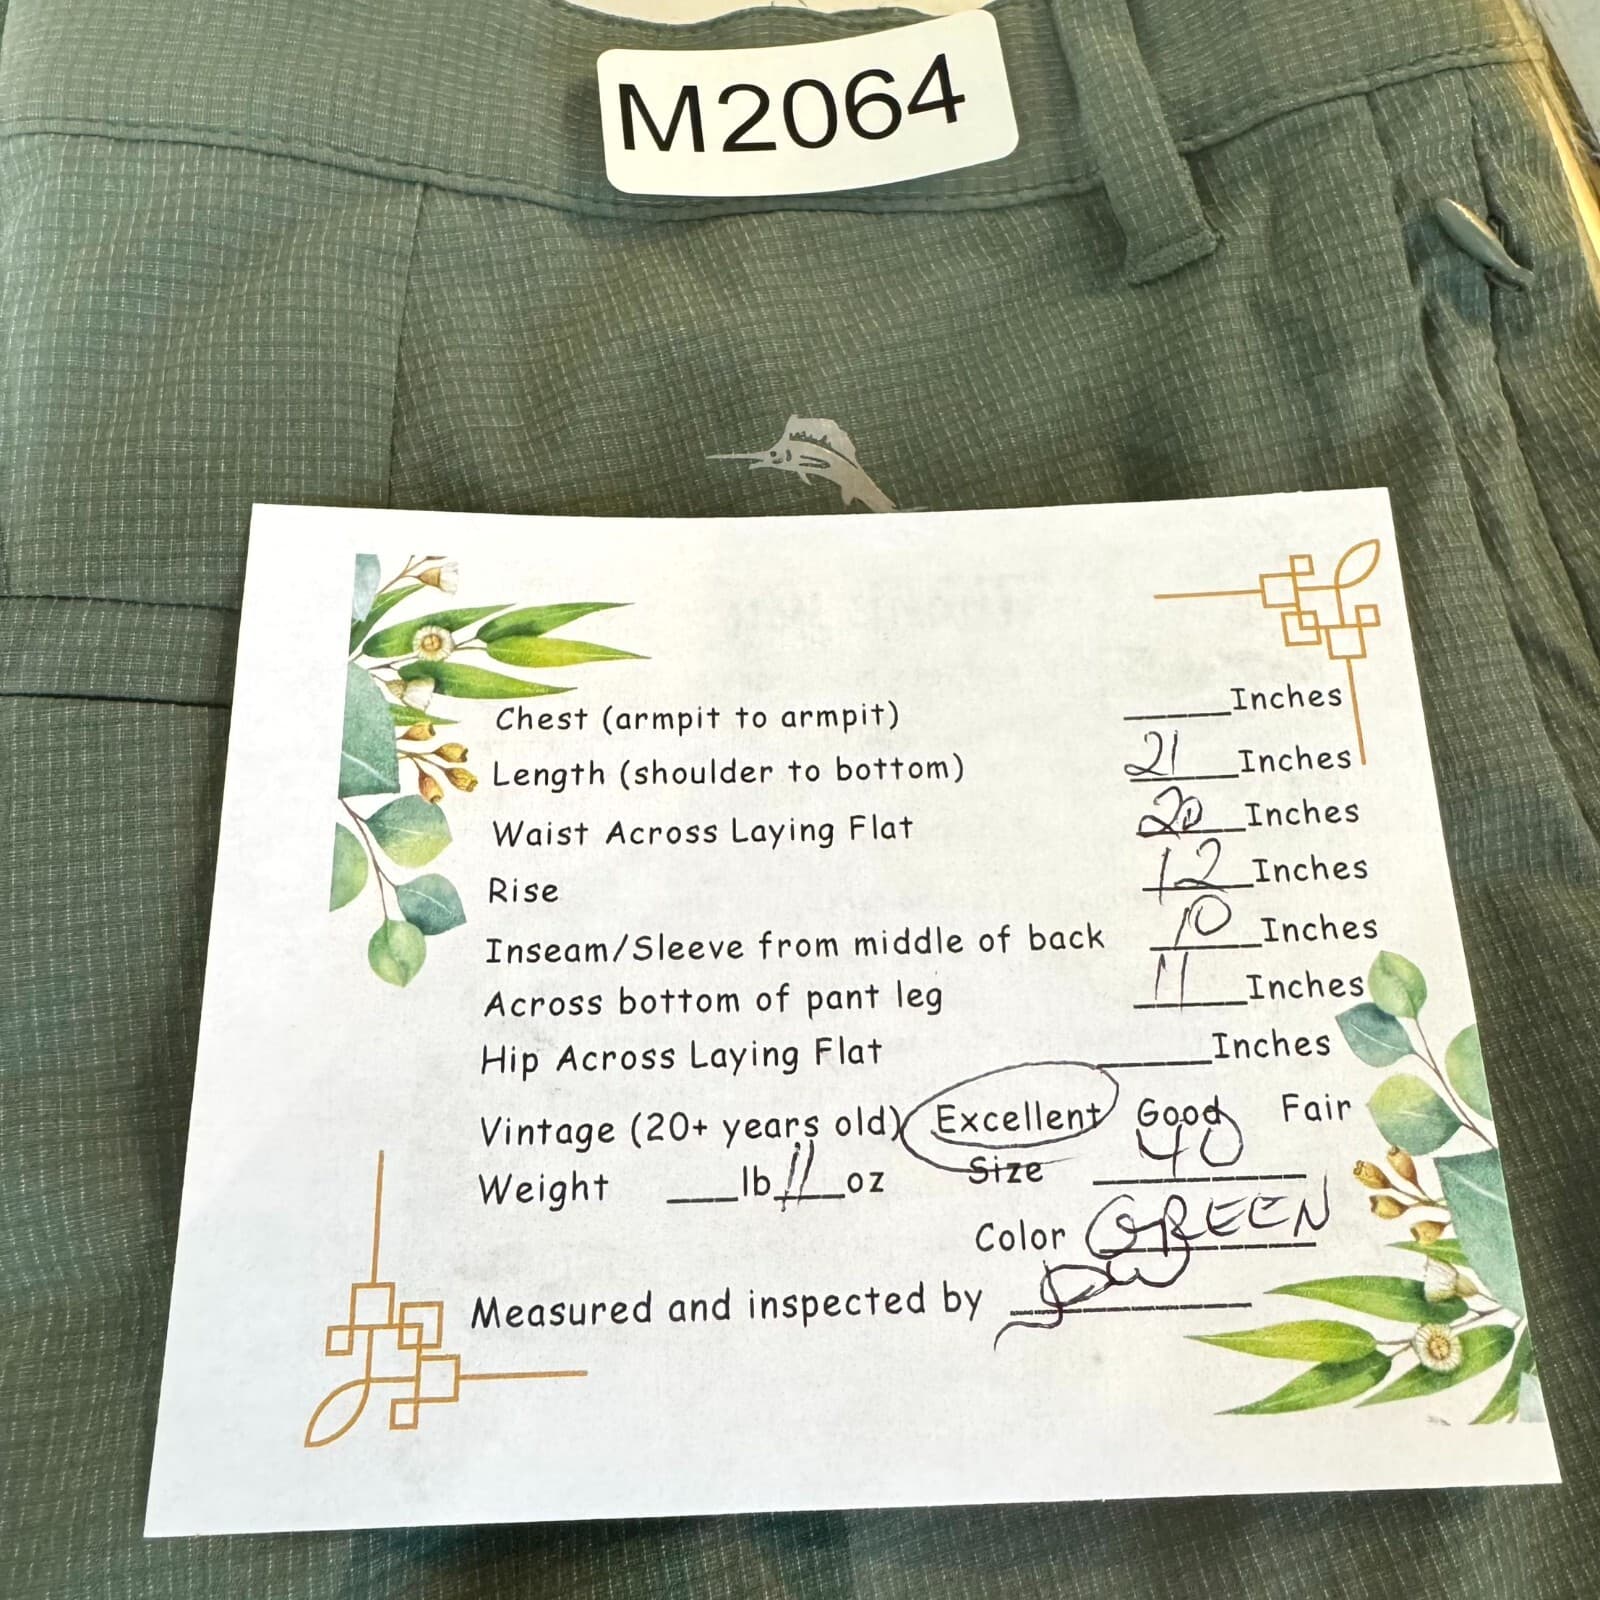 M2064
Chest (armpit to armpit) _____Inches
Length (shoulder to bottom) 21 Inches
Waist Across Laying Flat 20 Inches
Rise 12 Inches
Inseam/Sleeve from middle of back 10 Inches
Across bottom of pant leg 11 Inches
Hip Across Laying Flat _____Inches
Vintage (20+ years old) Excellent Good Fair
Weight ___lb 11 oz Size 40
Color GREEN
Measured and inspected by